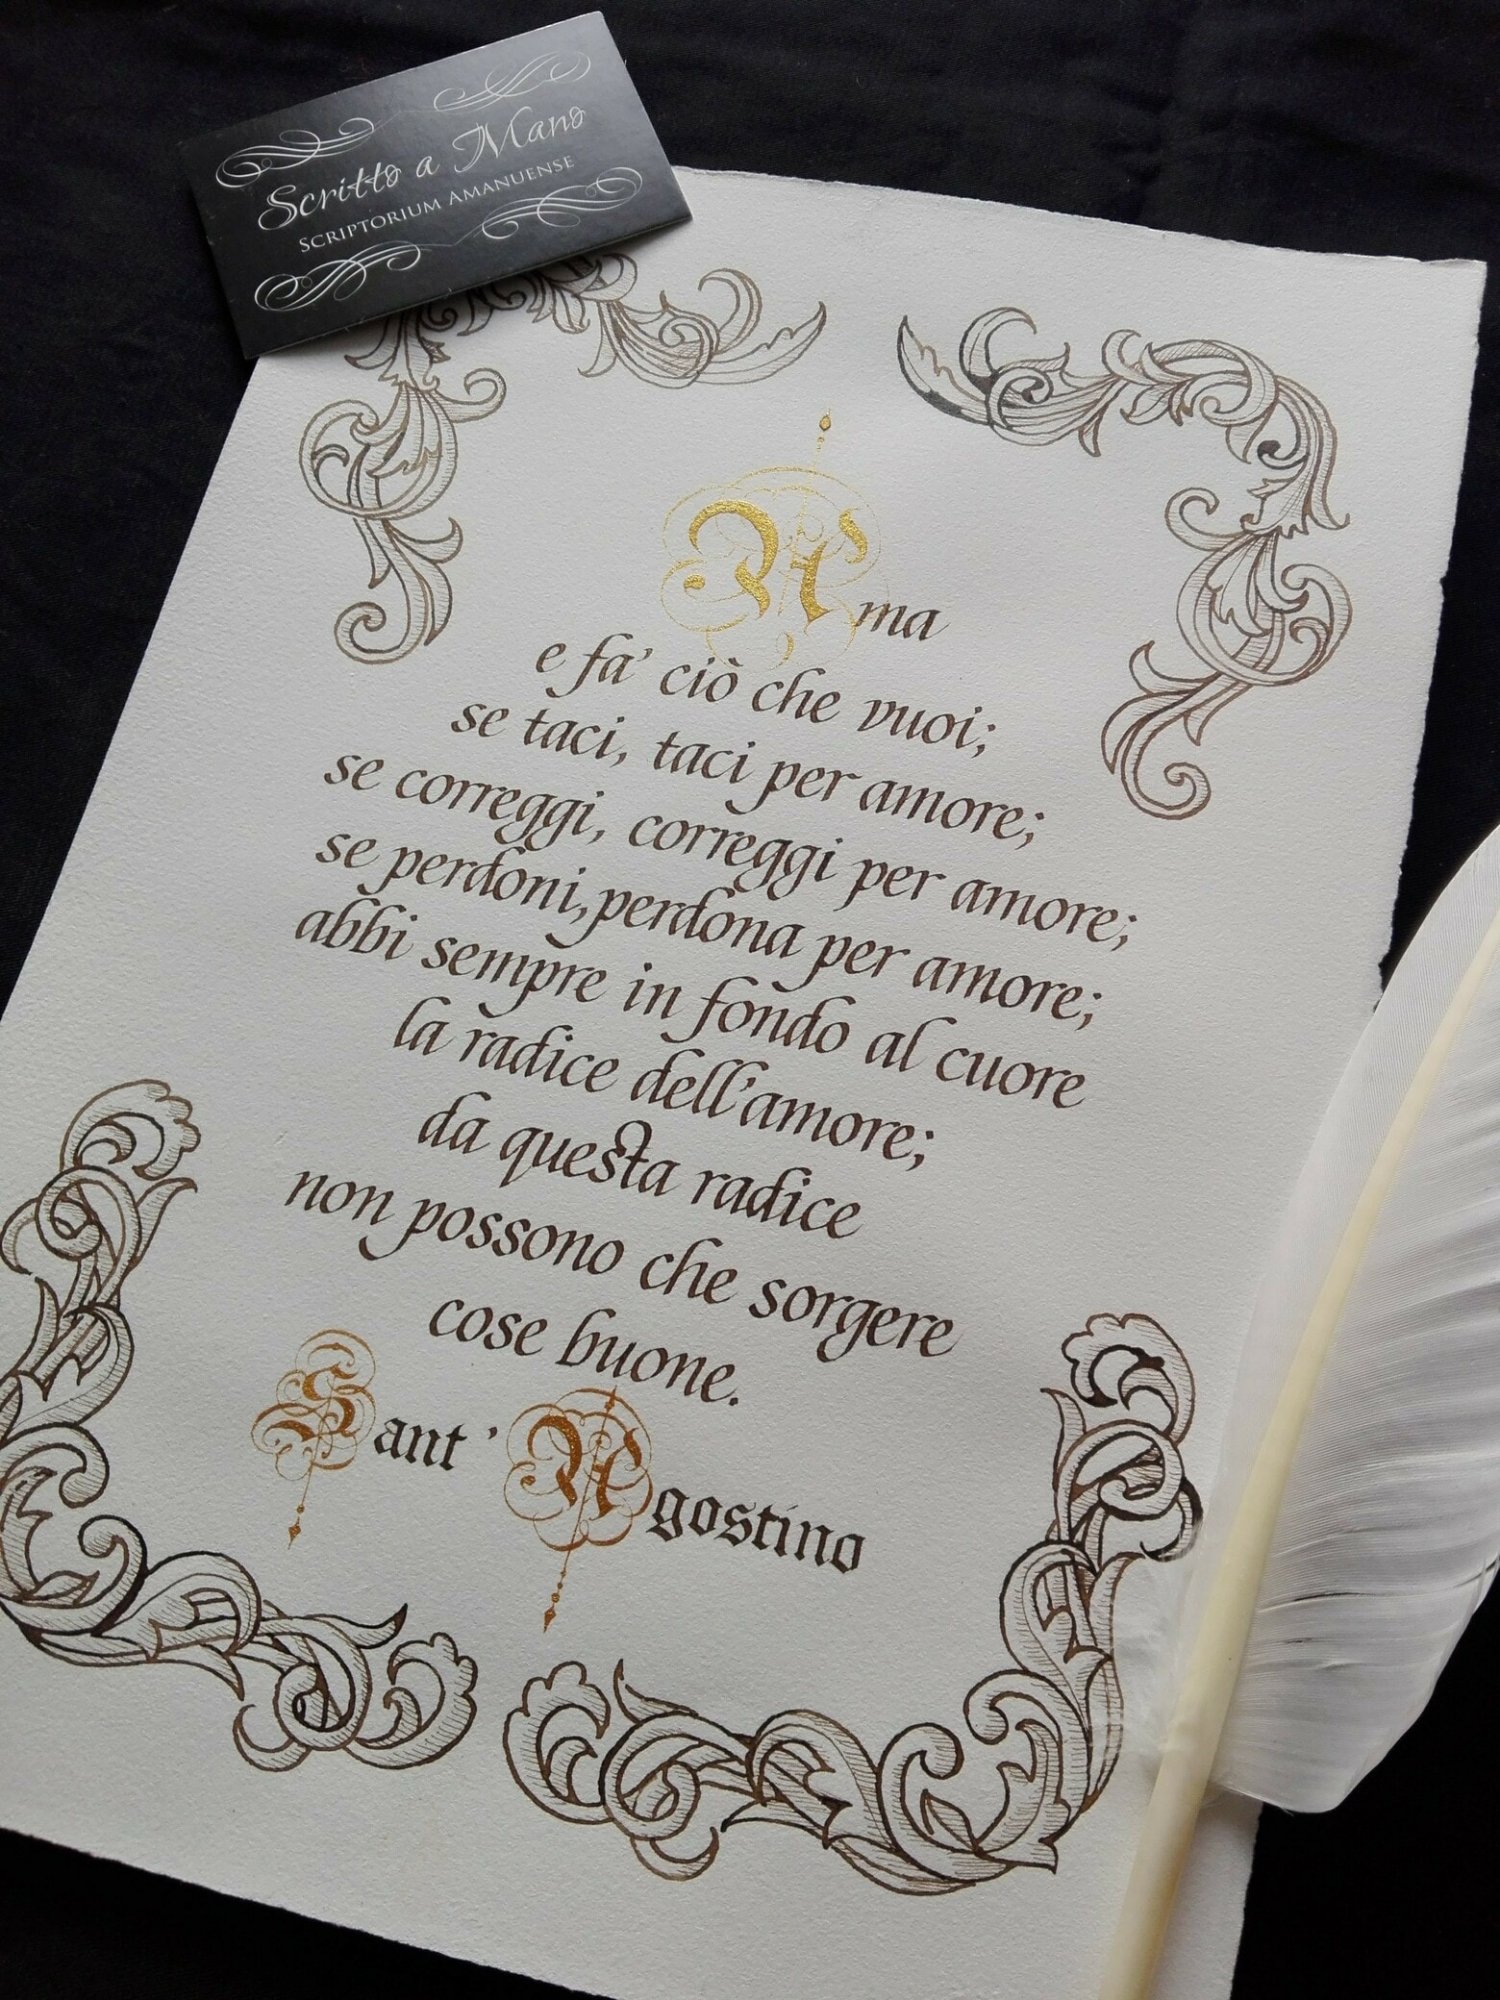 Scritto a Mano
SCRIPTORIUM AMANUENSE
Ama
e fa' ciò che vuoi;
se taci, taci per amore;
se correggi, correggi per amore;
se perdoni, perdona per amore;
abbi sempre in fondo al cuore
la radice dell'amore;
da questa radice
non possono che sorgere
cose buone.
Sant' Agostino